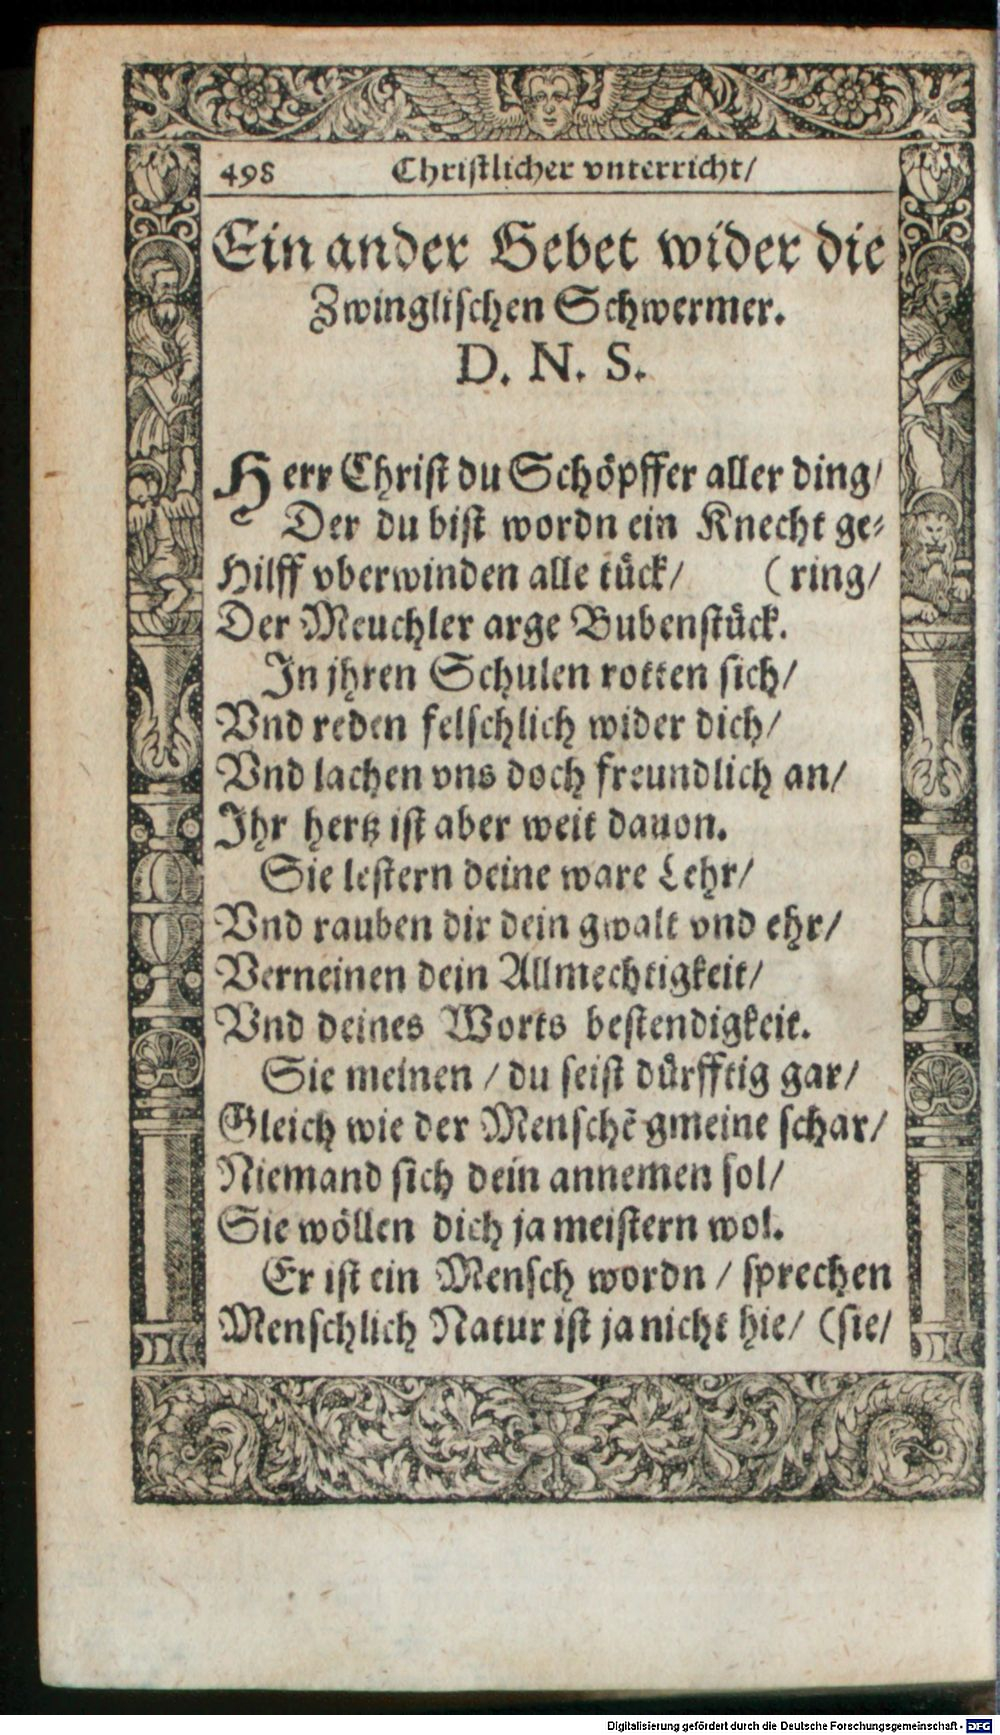 498 Christlicher vnterricht/
Ein ander Gebet wider die
Zwinglischen Schwermer.
D. N. S.
Herr Christ du Schöpffer aller ding/
Der du bist wordn ein Knecht ge-
Hilff vberwinden alle tück/ (ring/
Der Meuchler arge Bubenstück.
In jhren Schulen rotten sich/
Vnd reden felschlich wider dich/
Vnd lachen vns doch freundlich an/
Ihr hertz ist aber weit dauon.
Sie lestern deine ware Lehr/
Vnd rauben dir dein gwalt vnd ehr/
Verneinen dein Allmechtigkeit/
Vnd deines Worts bestendigkeit.
Sie meinen / du seist dürfftig gar/
Gleich wie der Menschē gmeine schar/
Niemand sich dein annemen sol/
Sie wöllen dich ja meistern wol.
Er ist ein Mensch wordn / sprechen
Menschlich Natur ist ja nicht hie/ (sie/
Digitalisierung gefördert durch die Deutsche Forschungsgemeinschaft - DFG